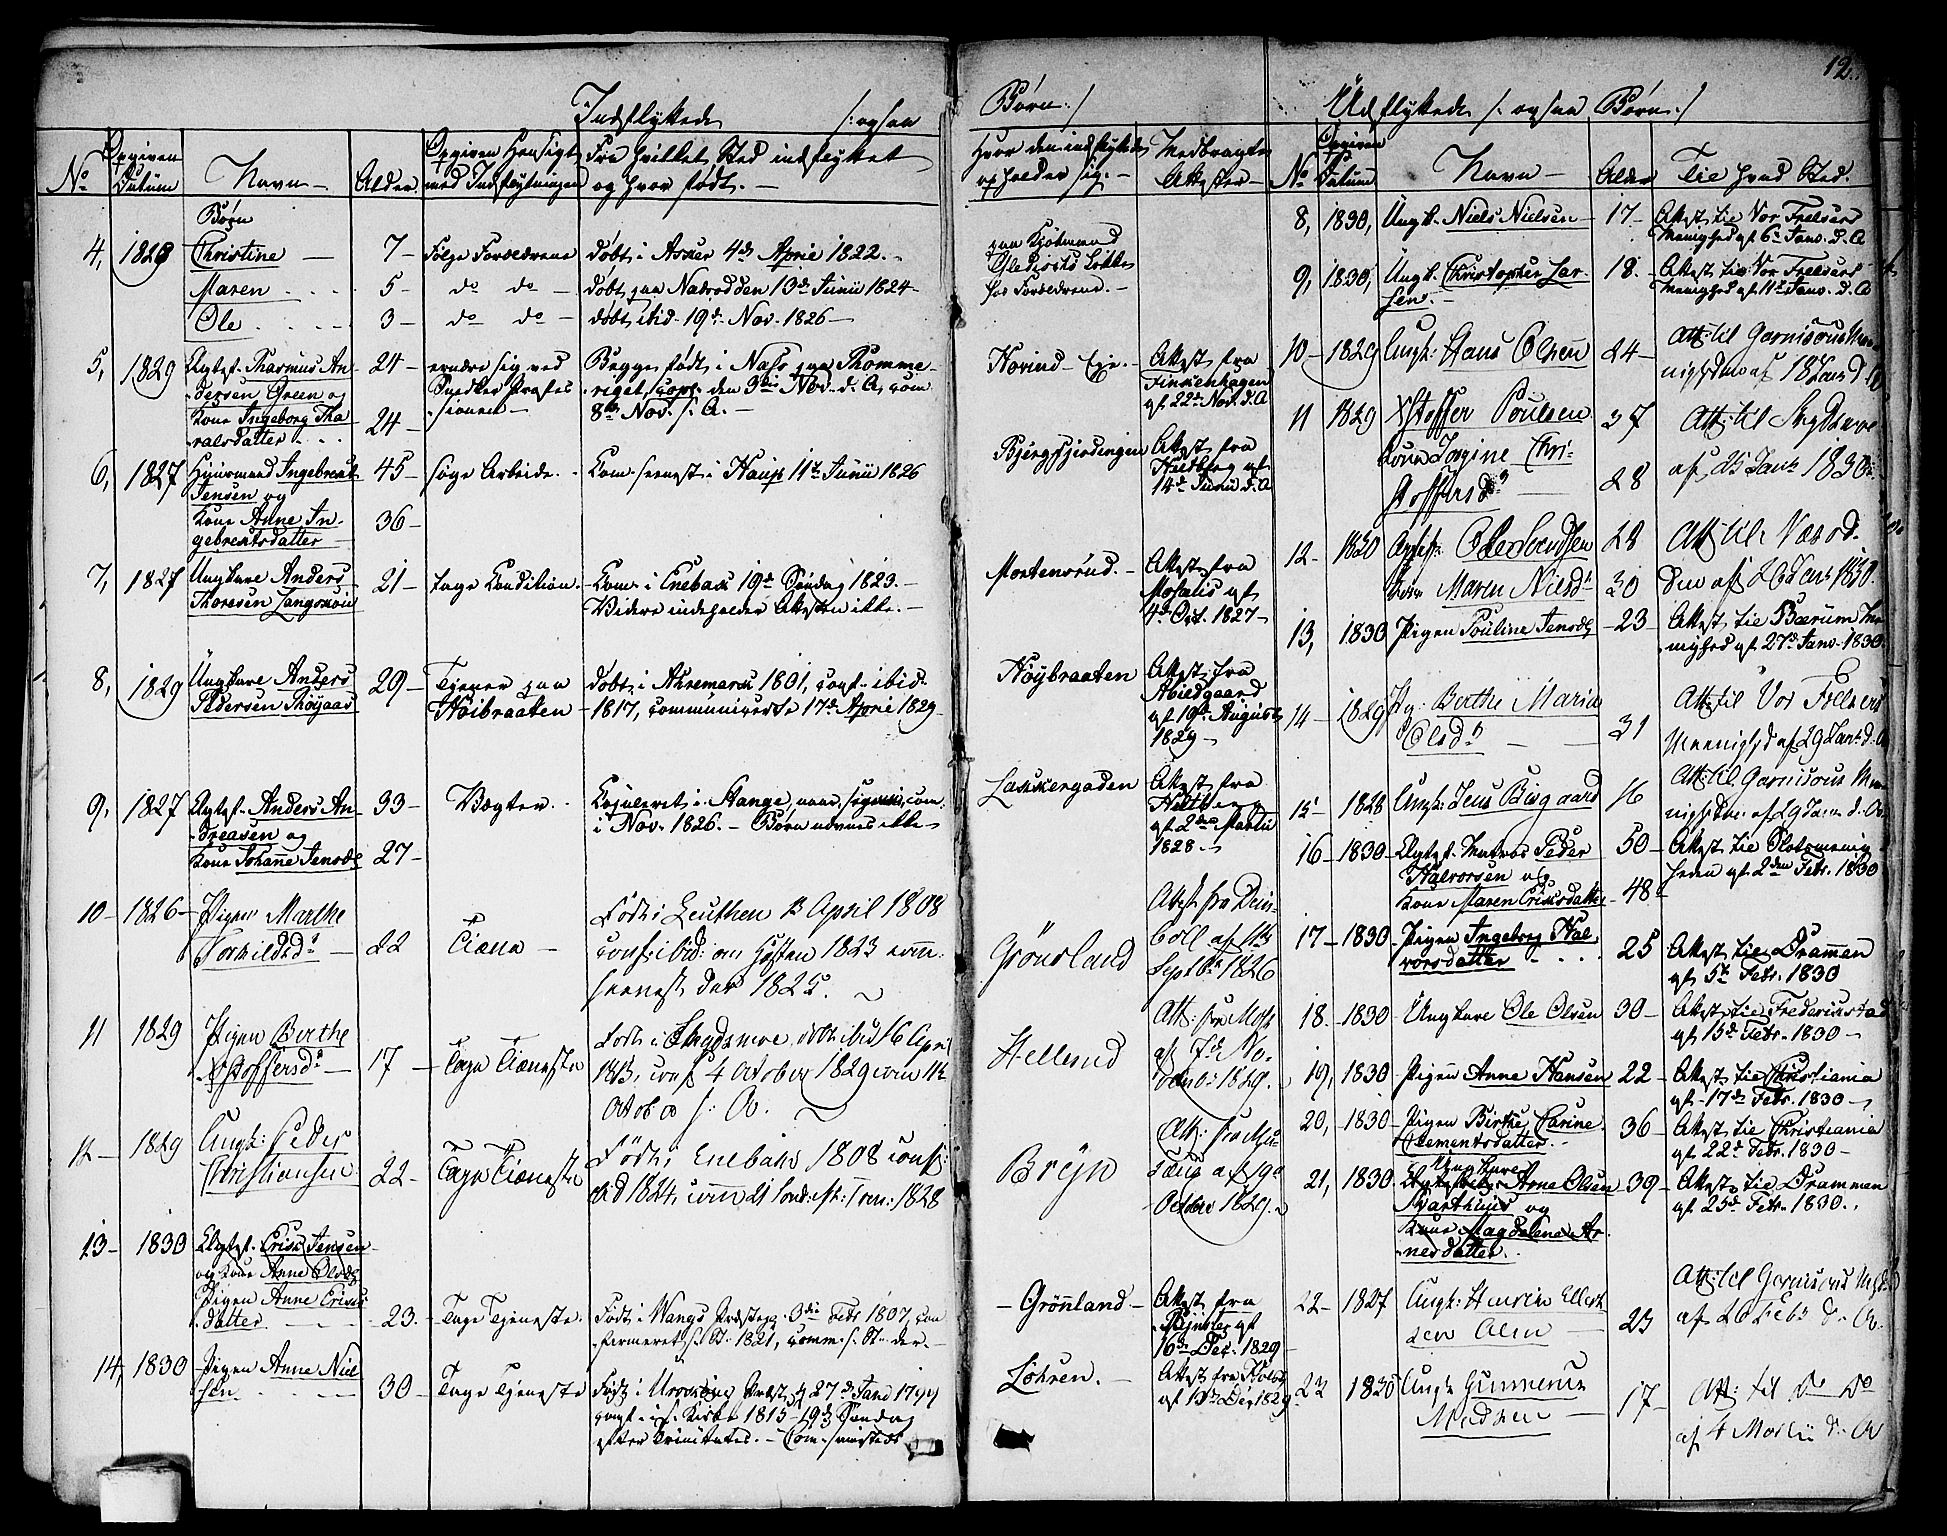 12.
Indflyttede /: ogsaa Børn :/
No
Opgiven Datum
Navn
Alder
Opgiven Hensigt med Indflytningen
Fra hvilket Sted indflyttet og hvor født.
Hvor den indflyttede opholder sig.
Medbragte Attester
Børn
4, 1828 Christine 7 Følge Forældrene døbt i Asker 4de April 1822.
Maren 5 do do døbt paa Næsod den 13de Junii 1824
Ole 3 do do døbt ibid 19de Nov. 1826
hos Forældrene.
5, 1829 Rasmus An-
dersen Green og 24
Kone Ingeborg Tha-
ralsdatter 24
ernære sig ved
Snedker Profes-
sionen
Begge født i Næss paa Romme-
riget, copl. den 3die Nov. d. A, com
8de Nov. s. A.
Hovind Eje.
Attest fra
Finkenhagen
af 22de Nov. d. A
6, 1827 Ingebret
Jensen og 45
Kone Anne In-
gebretsdatter 36
søge Arbeide.
Com. seenest i Haug 11te Junii 1826
Attest fra
14de Junii d. A
7, 1827 Ungkarl Anders
Thoresen Langsrøin 21
tage Condition.
Com. i Enebak 19de Søndag 1823.
Videre indeholder Attesten ikke.
Mortensrud.
Attest fra
af
4de Oct. 1827
8, 1829 Ungkarl Anders
Pedersen 29
Tjener paa
Høibraaten
døbt i Aremark 1801, conf. ibid.
1817, communicerte 17de April 1829
Høybraaten
Attest fra
Abildgaard
af 19de August
1829
9, 1827 Anders An-
dreasen og 33
Kone Johane Jensdr 27
Vægter
i Stange,
i Nov. 1826. Børn nævnes ikke
Attest fra
af 2den Martii
1828
10 1826 Pigen Marthe
Torkildsdr 22
Tiene
Født i Leuthen 13 April 1808
conf: ibid: om Høsten 1823 com.
seenest der 1825.
Grönland
Attest fra Dein-
boll af 11te
Septbr 1826
11 1829 Pigen Berthe
Xstoffersd: 17
Tage Tieneste
Født i Skydsmoe, døbt ibid 16 April
1813, conf 4 October 1829 com 11te
Octob s: A.
Hellerud
Att: fra Moss
af 7de No-
vemb: 1829.
12 1829 Ungk: Peder
Christiansen 22
Tage Tieneste
Født i Enebak 1808 conf:
ibid 1824, com 21 Sønd: 1828
Bryn
Att: fra
af 19de
October 1829.
13 1830 Erik Jensen
og Kone Anne Olsdr
Pigen Anne Eriks-
datter 23.
Tage Tjeneste.
Født i Wangs Præstegj. 3die Febr 1807, con-
firmeret s. St. 1821, comm. s. St. der.
Grönland
Attest fra
af
16de Dec. 1829
14, 1830 Pigen Anne Niel-
sen 30
Tage Tjeneste
Født i Urskoug Præstgj 27de Janr 1799
conf. i s. Kirke 1815 19de Søndag
efter Trinitatis. Com. sammesteds
Löhren.
Attest fra
af 15de Dec 1829
Udflyttede /: ogsaa Børn :/
No
Opgiven Datum
Navn
Alder
Til hvad Sted.
8, 1830, Ungk. Niels Nielsen 17 Attest til Vor Frelsers
Menighed af 6te Janv. d. A
9, 1830, Ungk. Christopher Lar-
sen. 18. Attest til Vor Frelsers
Menighed af 11te Janv. d. A
10 1829 Ungk: Hans Olsen 24 Att: til Garnisons Me-
nigheden af 18 Janr d. A
11 1829 Xstoffer Poulsen 37
Kone Jorgine Chri-
stoffersdr 28
Att: til Skydsmoe
af 25 Janr 1830
12 1830 Ole 28
Kone Maren Nielsdr 30
Att: til Næsod-
den af 26 Janr 1830.
13, 1830 Pigen Pouline Jensdr 23 Attest til Bærum Me-
nighed af 27de Janv. 1830
14 1829 Pig: Berthe Maria
Olsdr 31
Att: til Vor Frelsers
Meenighed af 29 Janr d. A
15 1828 Ungk: Jens Bisgaard 16 Att: til Garnisons Me-
nigheden af 29 Janr d. A
16 1830 Matros Peder
Halvorsen og 50
Kone Maren Eriksdatter 48
Attest til Slotsmenig-
heden af 2den Febr. 1830
17 1830 Pigen Ingeborg Hal-
vorsdatter 25
Attest til Drammen
af 5te Febr. 1830
18. 1830 Ungkarl Ole Olsen 30 Attest til Frederikstad
af 15de Febr. 1830
19, 1830 Pigen Anne Hansen 22 Attest til Christiania
af 17de Febr. 1830
20, 1830 Pigen Birthe Carine
Clementsdatter. 36
Attest til Christiania
af 22de Febr. 1830
21, 1830 Ungkarl
Arne Olsen 39
Svarthuus og
Kone Magdalene Ar-
nesdatter.
Attest til Drammen
af 23de Febr. 1830.
22 1827 Ungk:
23
Att: til Garnisons
af 26 Feb d. A.
23 1830 Ungk Gunnerius
Madsen 17
Att: til do do
af 4 Martii d. A